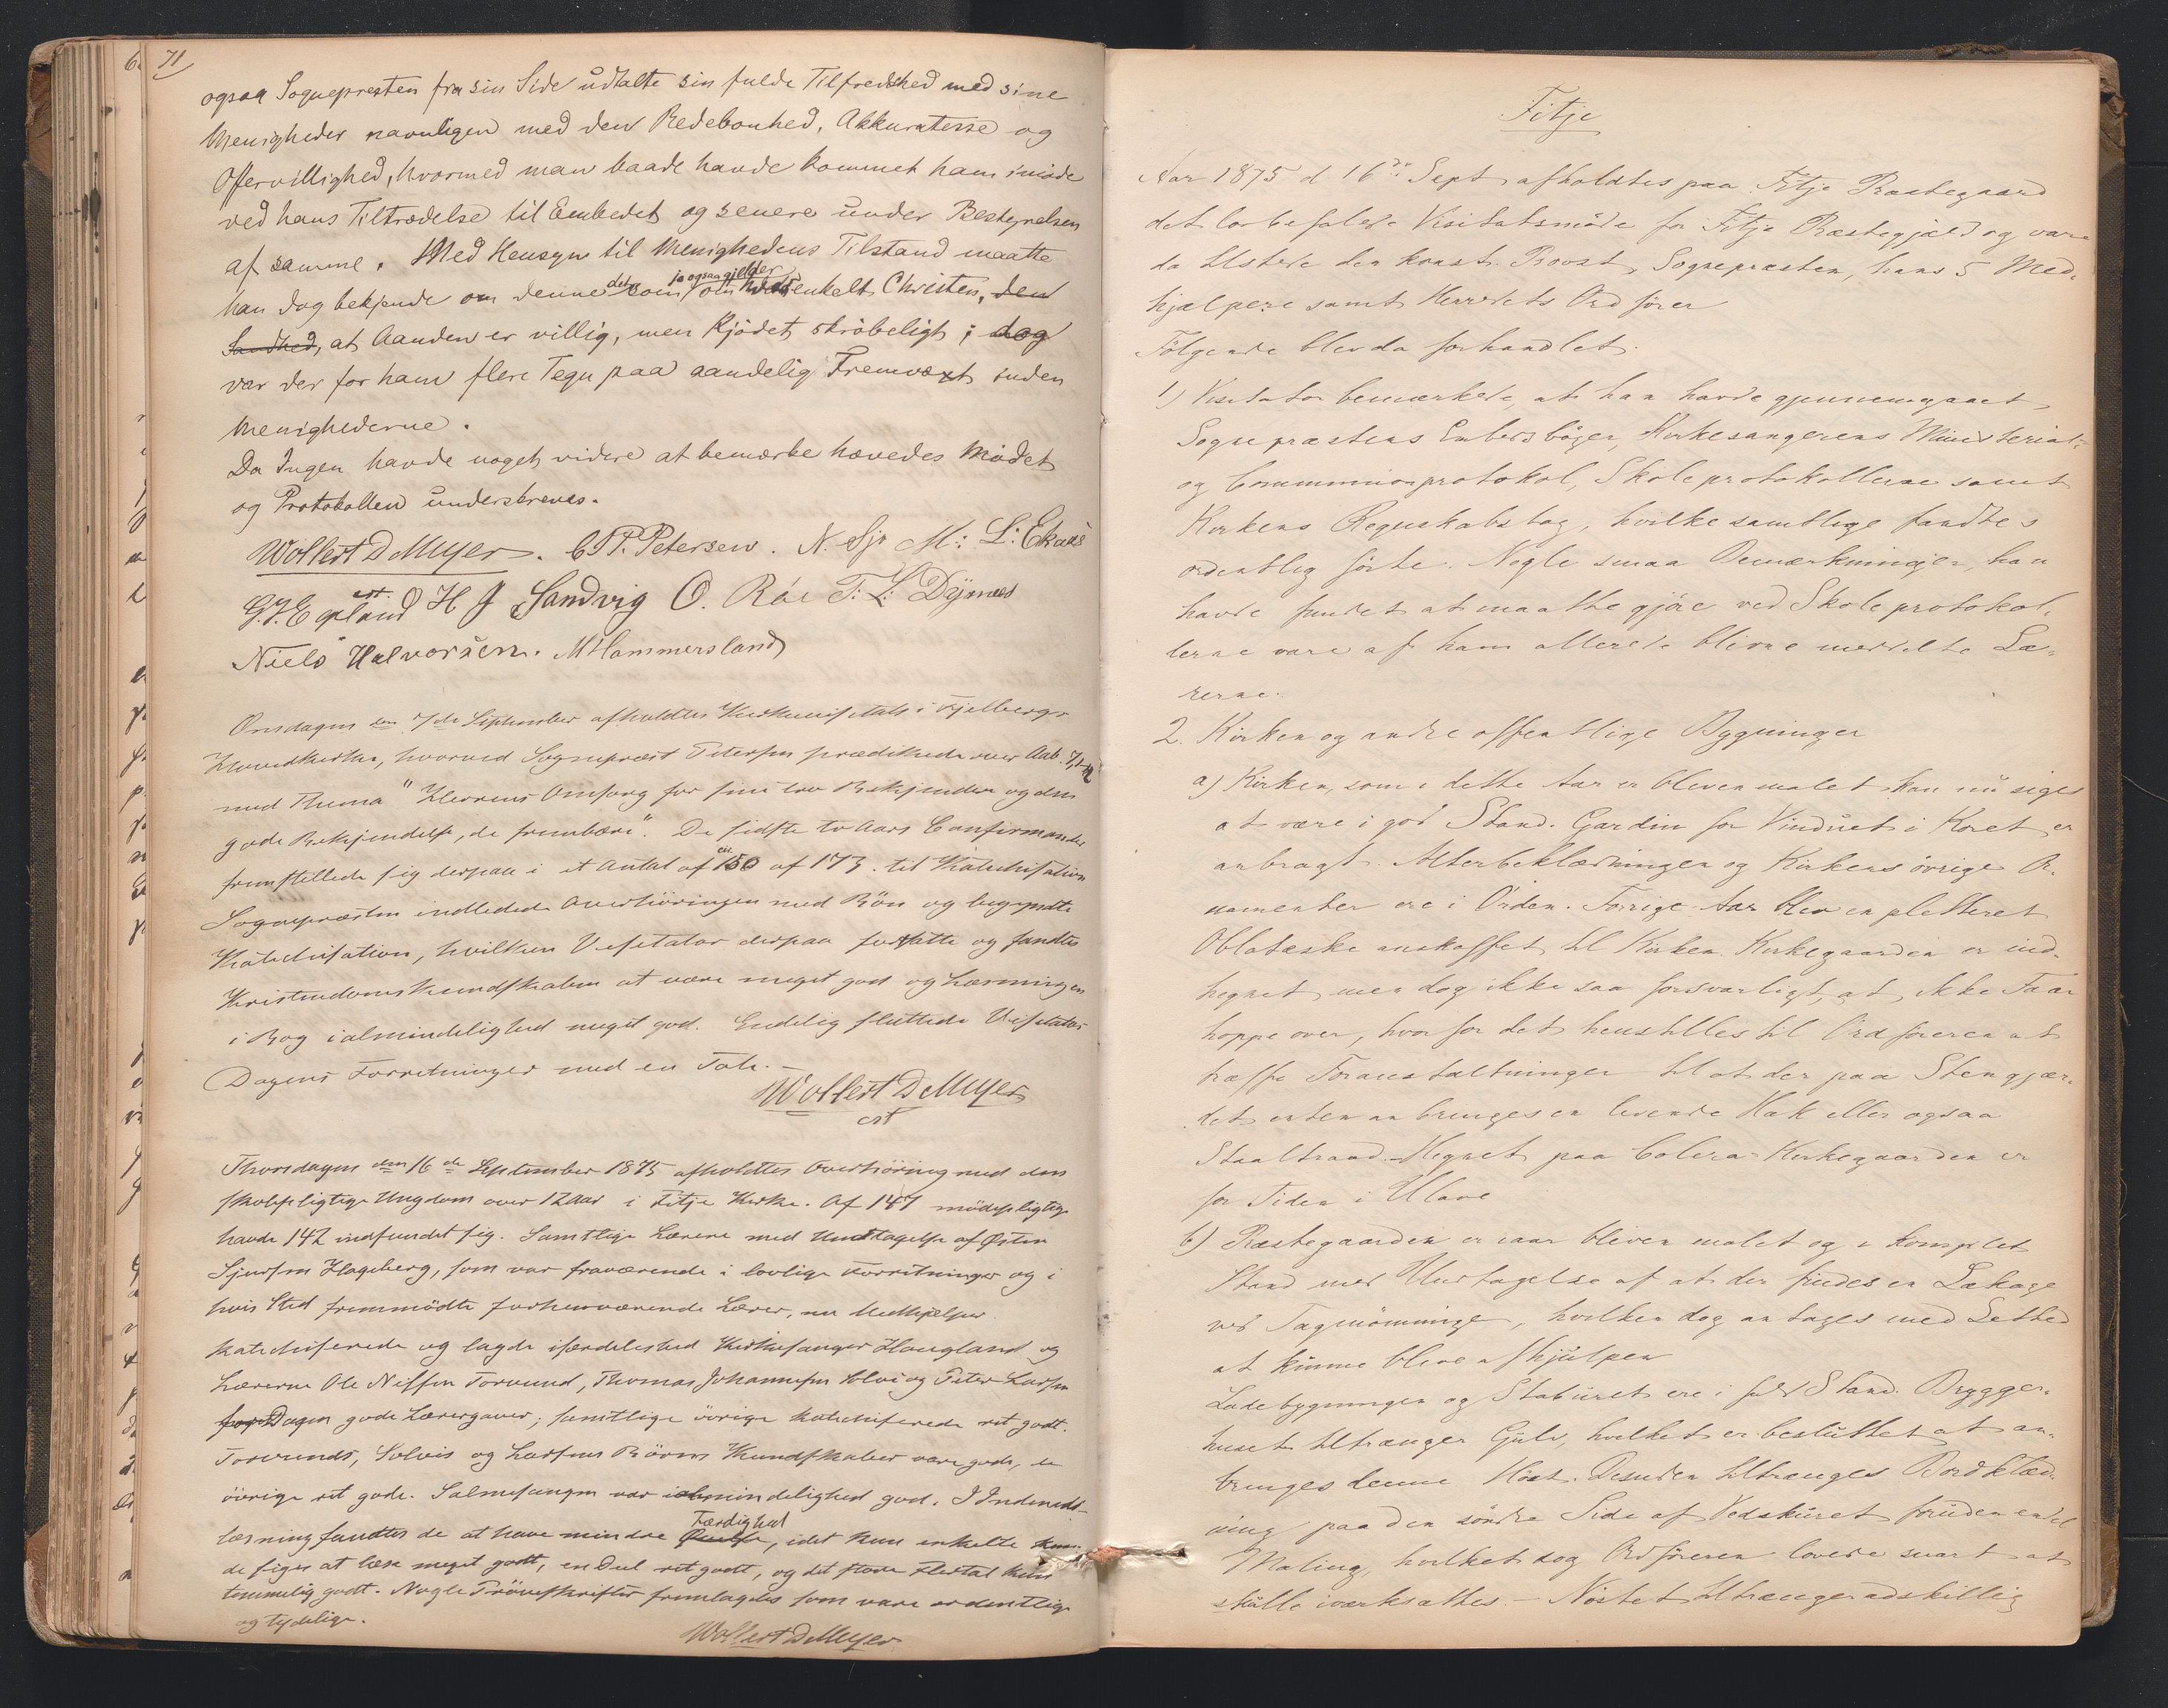 71
ogsaa Sognepresten fra sin Side udtalte sin fulde Tilfredshed med sine
Menigheder navnligen med den Redebonhed, Akkuratesse og
Offervillighed, hvormed man baade havde kommet ham imöde
ved hans Tiltrædelse til Embedet og senere under Bestyrelsen
af samme. Med Hensyn til Menighedens Tilstand maatte
ja ogsaa gjelder
han dog bekjende om denne det som om enkelt Christen, den
Sandhed, at Aanden er villig, men Kjödet skröbeligt; dog
var der for ham flere Tegn paa aandelig Fremvæxt inden
Menighederne.
Da Ingen havde noget videre at bemærke hævedes Mödet
og Protokollen underskreves.
Wollert D Meyer. C. P. Petersen. N. Sjo M: L: Ekaas
cst.
G. J. Egeland H J Sandvig O. Röe T: L: Dÿrnæs
Niels Halvorsen. M Hammersland
Onsdagen den 7de September afholdtes Kirkevisitats i Fjelbergs
Hovedkirke, hvorved Sognepræst Petersen prædikede over Aab. 7,
med Thema "Herrens Omsorg for sine tro Bekjendere og den
gode Bekjendelse, de frembære". De sidste to Aars Confirmander
fremstillede sig derpaa i et Antal af ca. 150 af 173. til Katechisation
Sognepræsten indledede Overhöringen med Bön og begyndte
Katechisation, hvilken Visitator derpaa fortsatte og fandtes
Kristendomskundskaben at være meget god og Læsningen
i Bog i almindelighed meget god. Endelig sluttede Visitator
Dagens Forretninger med en Tale.
Wollert D Meyer
cst
Thorsdagen den 16de September 1875 afholdtes Overhöring med den
skolepligtige Ungdom over 12 Aar i Fitje Kirke. Af 147 mödepligtige
havde 142 indfundet sig. Samtlige Lærere med Undtagelse af Østen
Sjursen Hageberg, som var fraværende i lovlige Forretninger og i
hvis Sted fremmödte forhenværende Lærer, nu Medhjelper
katechiserede og lagde isærdeleshed Kirkesanger Haugland og
Lærerne Ole Nilssen Torvund, Thomas Johannesen Solvi og Peter Larsen
for Dagen gode Lærergaver; samtlige övrige katechiserede ret godt.
Torvunds, Solvis og Larsens Börns Kundskaber vare gode, de
övrige ret gode. Salmesangen var i almindelighed god. I Indenads-
Færdighed
læsning fandtes de at have mindre Övelse, idet kun enkelte kun-
de siges at læse meget godt, en Deel ret godt, og det store Flertal kun
temmelig godt. Nogle Pröveskrifter fremlagdes som vare ordentlige
og tydelige.
Wollert D Meyer
Fitje
Aar 1875 d 16de Sept. afholdtes paa Fitje Præstegaard
det lovbefalede Visitatsmöde for Fitje Præstegjæld og vare
da tilstede den konst. Provst, Sognepræsten, hans 5 Med-
hjælpere samt Herredets Ordförer
Fölgende blev da forhandlet.
1) Visitator bemærkede, at han havde gjennemgaaet
Sognepræstens Embedsböger, Kirkesangerens Ministerial-
og Communionprotokol, Skoleprotokollerne samt
Kirkens Regnskabsbog, hvilke samtlige fandtes
ordentlig förte. Nogle smaa Bemærkninger, han
havde fundet at maatte gjöre ved Skoleprotokol-
lerne vare af ham allerede blevne meddelte Læ-
rerne.
2. Kirken og andre offentlige Bygninger
a) Kirken, som i dette Aar er bleven malet kan nu siges
at være i god Stand. Gardin for Vinduet i Koret er
anbragt. Alterbeklædningen og Kirkens övrige Or-
namenter ere i Orden. Forrige Aar blev en pletteret
Oblatæske anskaffet til Kirken. Kirkegaarden er ind-
hegnet men dog ikke saa forsvarligt, at ikke Faar
hoppe over, hvorfor det henstilles til Ordföreren at
træffe Foranstaltninger til at der paa Stengjær-
det enten anbringes en levende Hæk eller ogsaa
Staaltraad. Hegnet paa Colera-Kirkegaarden er
for Tiden i Ulave
b) Præstegaarden er iaar bleven malet og i komplet
Stand med Undtagelse af at der findes en Lækage
ved Tagmönningen, hvilken dog antages med Lethed
at kunne blive afhjulpen
Ladebygningen og Staburet ere i fuld Stand. Brygger-
huset tiltrænger Gulv, hvilket er besluttet at an-
bringes denne Höst. Desuden tiltrænges Bordklæd-
ning paa den söndre Side af Vedskuret foruden endel
Maling, hvilket dog Ordföreren lovede snart at
skulle iværksættes. - Nöstet tiltrænger adskillig